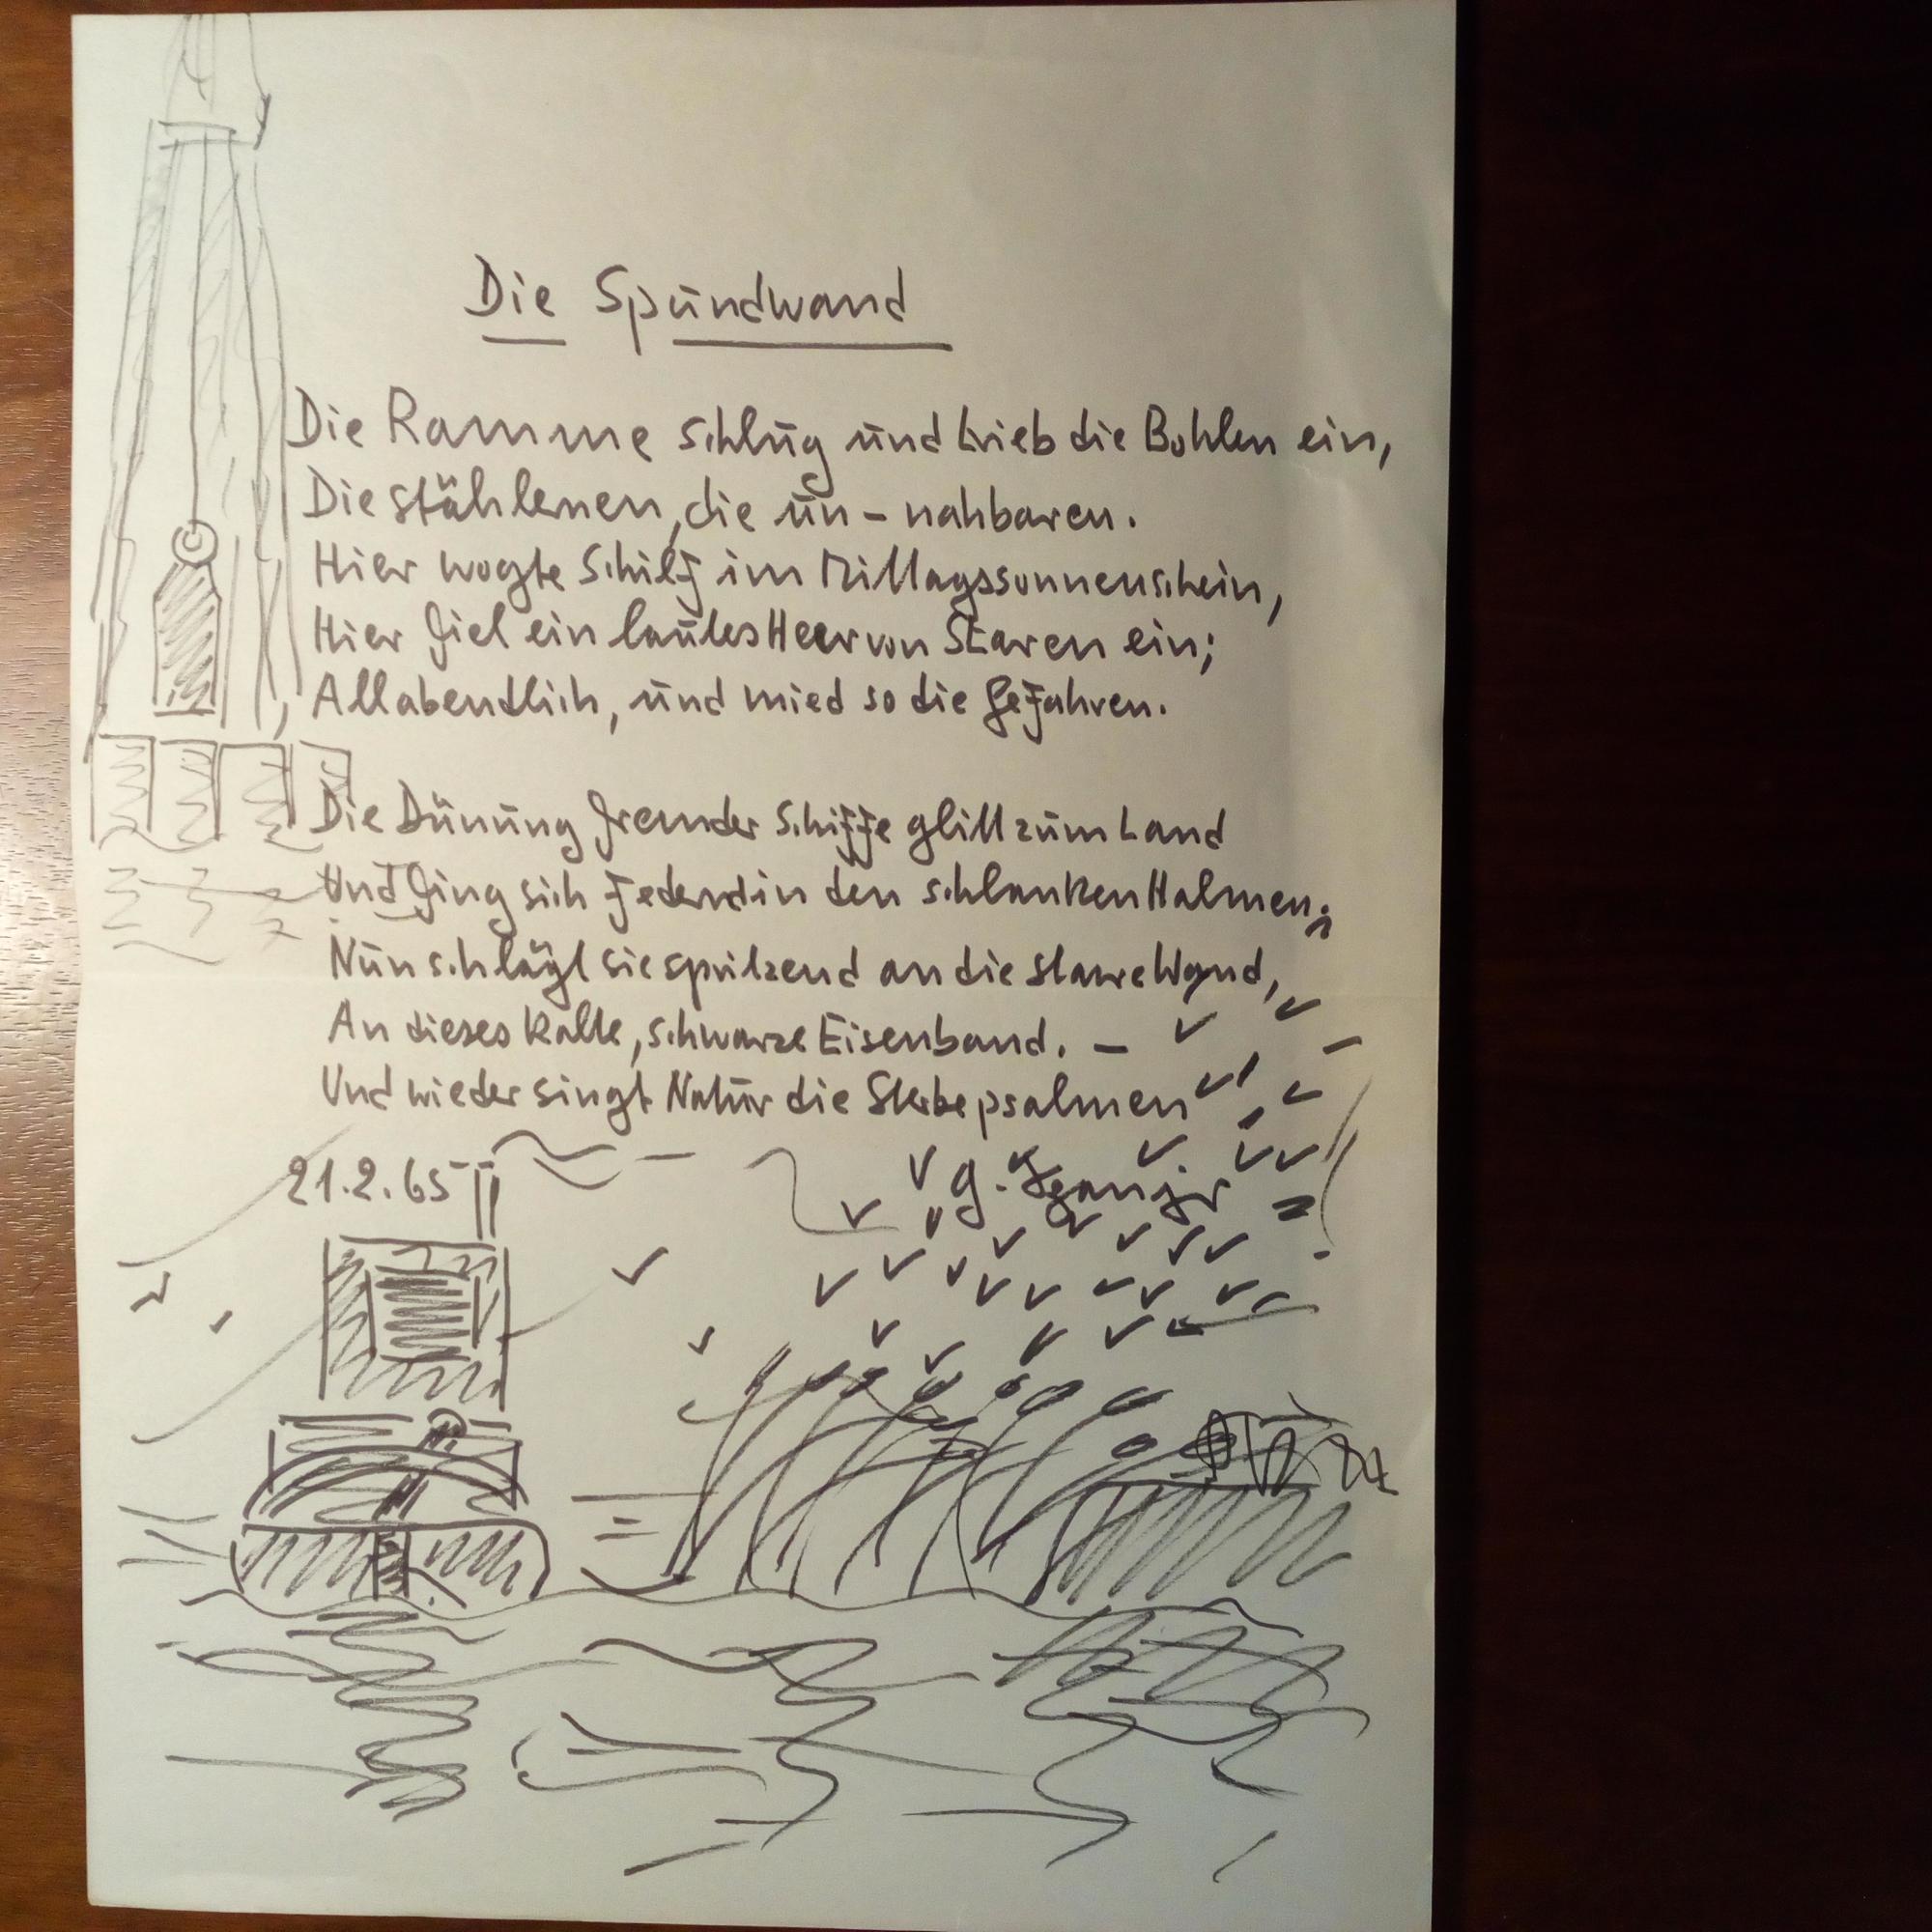 Die Spundwand
Die Ramme schlug und trieb die Bohlen ein,
Die stählernen, die un-nahbaren.
Hier wogte Schilf im Mittagssonnenschein,
Hier fiel ein lautes Heer von Staren ein;
Allabendlich, und mied so die Gefahren.
Die Dünung fremder Schiffe glitt zum Land
Und fing sich federnd in den schlanken Halmen;
Nun schlägt sie spritzend an die starre Wand,
An dieses kalte, schwarze Eisenband. –
Und wieder singt Natur die Sterbepsalmen
21.2.65
G.